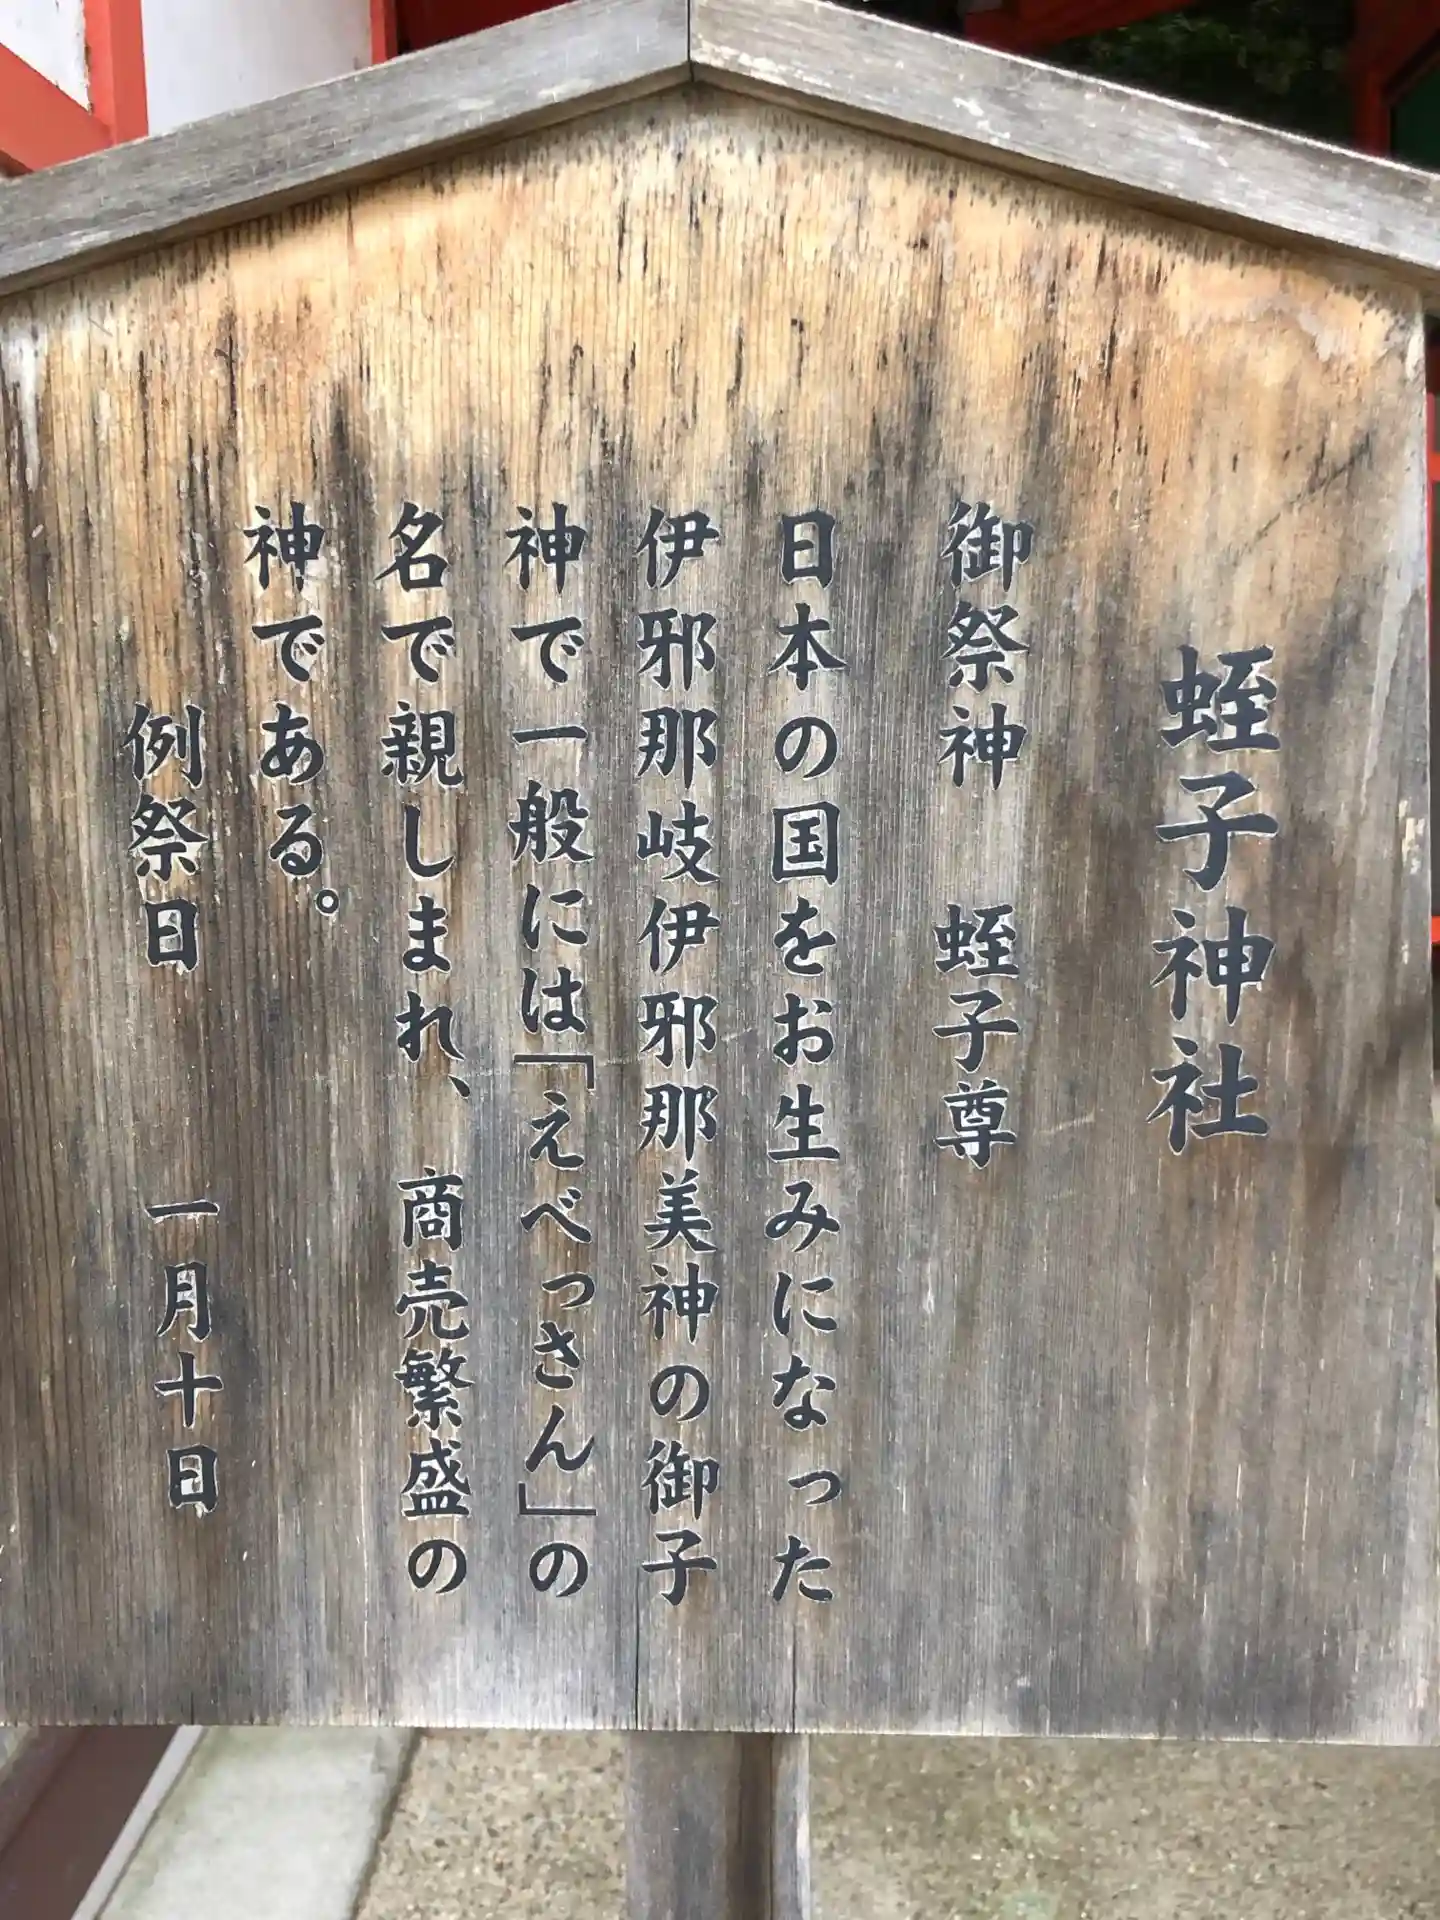 蛭子神社
御祭神　蛭子尊
日本の国をお生みになった
伊邪那岐伊邪那美神の御子
神で一般には「えべっさん」の
名で親しまれ、商売繁盛の
神である。
例祭日　一月十日